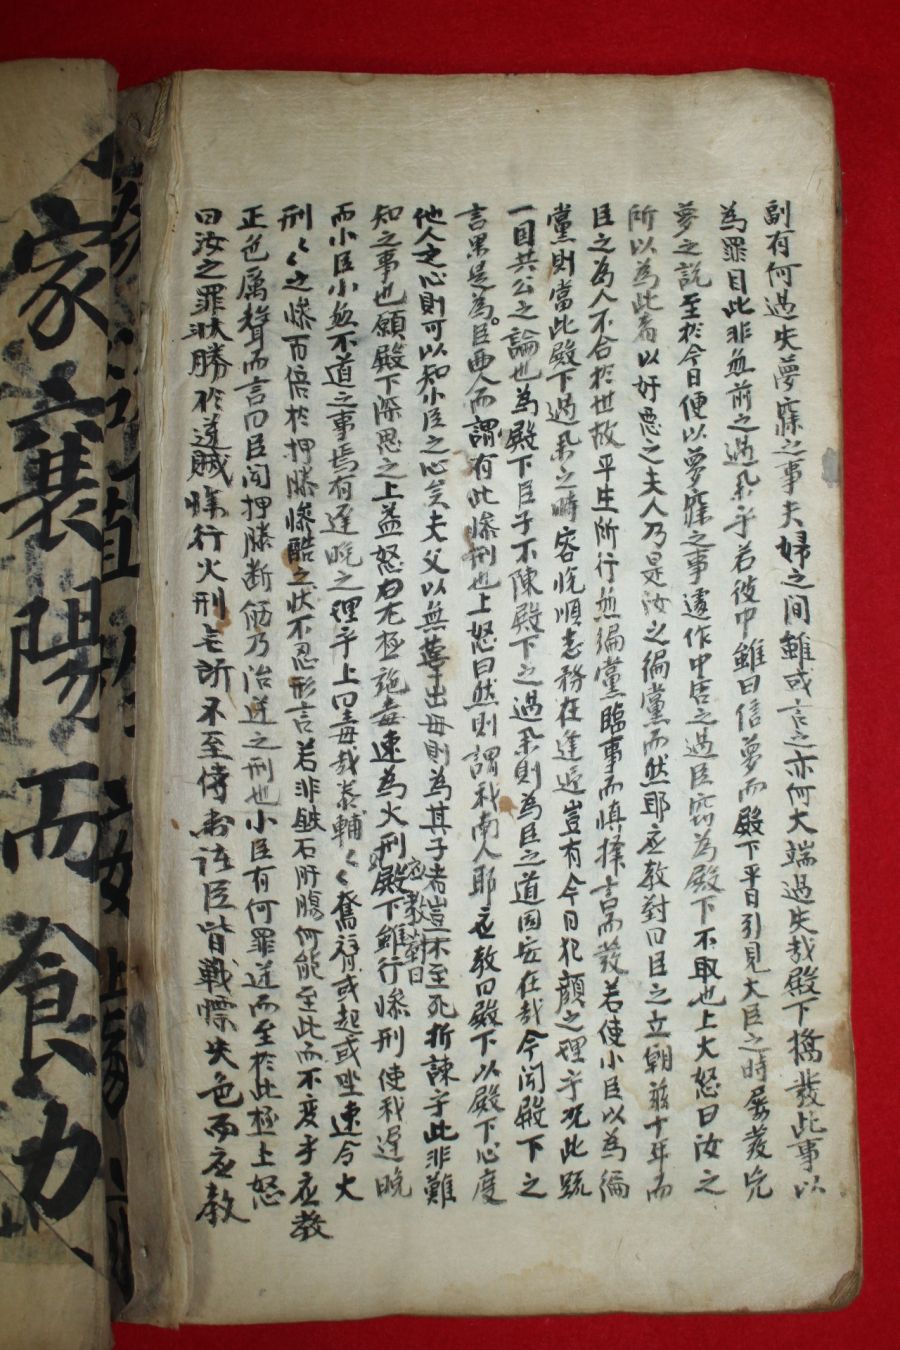 副有何過失夢寐之事夫婦之間雖或言之亦何大端過失哉殿下擒發此事以
為罪目此非無前之過擧乎若彼中雖曰信夢而殿下平日引見大臣之時屢發先
夢之說至於今日便以夢寐之事遽作中宮之過臣竊為殿下不取也上大怒曰汝之
所以為此者以奸惡之夫人乃是汝之偏黨而然耶應教對曰臣之立朝茲十年而
臣之為人不合於世故平生所行無偏黨臨事而慎擇言而發若使小臣以為偏
黨則當此殿下過擧之時容悅順志務在逢迎豈有今日犯顏之理乎況此疏
一國共公之論也為殿下臣子不陳殿下之過擧則為臣之道固安在哉今聞殿下之
言果是為臣西人而謂有此慘刑也上怒曰然則謂我南人耶應教曰殿下以殿下心度
他人之心則可以知小臣之心矣夫父以無辜出母則為其子者豈不至死折諫乎此非難
知之事也願殿下深思之上益怒曰尤極絶毒速為火刑殿下雖行慘刑使我遲晚
應教對曰
而小臣小無不道之事焉有遲晚之理乎上曰毒哉泰輔〻〻奮髯或起或坐速令火
刑〻〻之慘百倍於押膝慘酷之狀不忍形言若非鐵石肝膓何能至此而不變乎應教
正色厲聲而言曰臣聞押膝斷筋乃治逆之刑也小臣有何罪逆而至於此極上怒
曰汝之罪狀勝於逆賊條行火刑無所不至侍衛諸臣皆戰慄失色而應教
家襄陽而食力